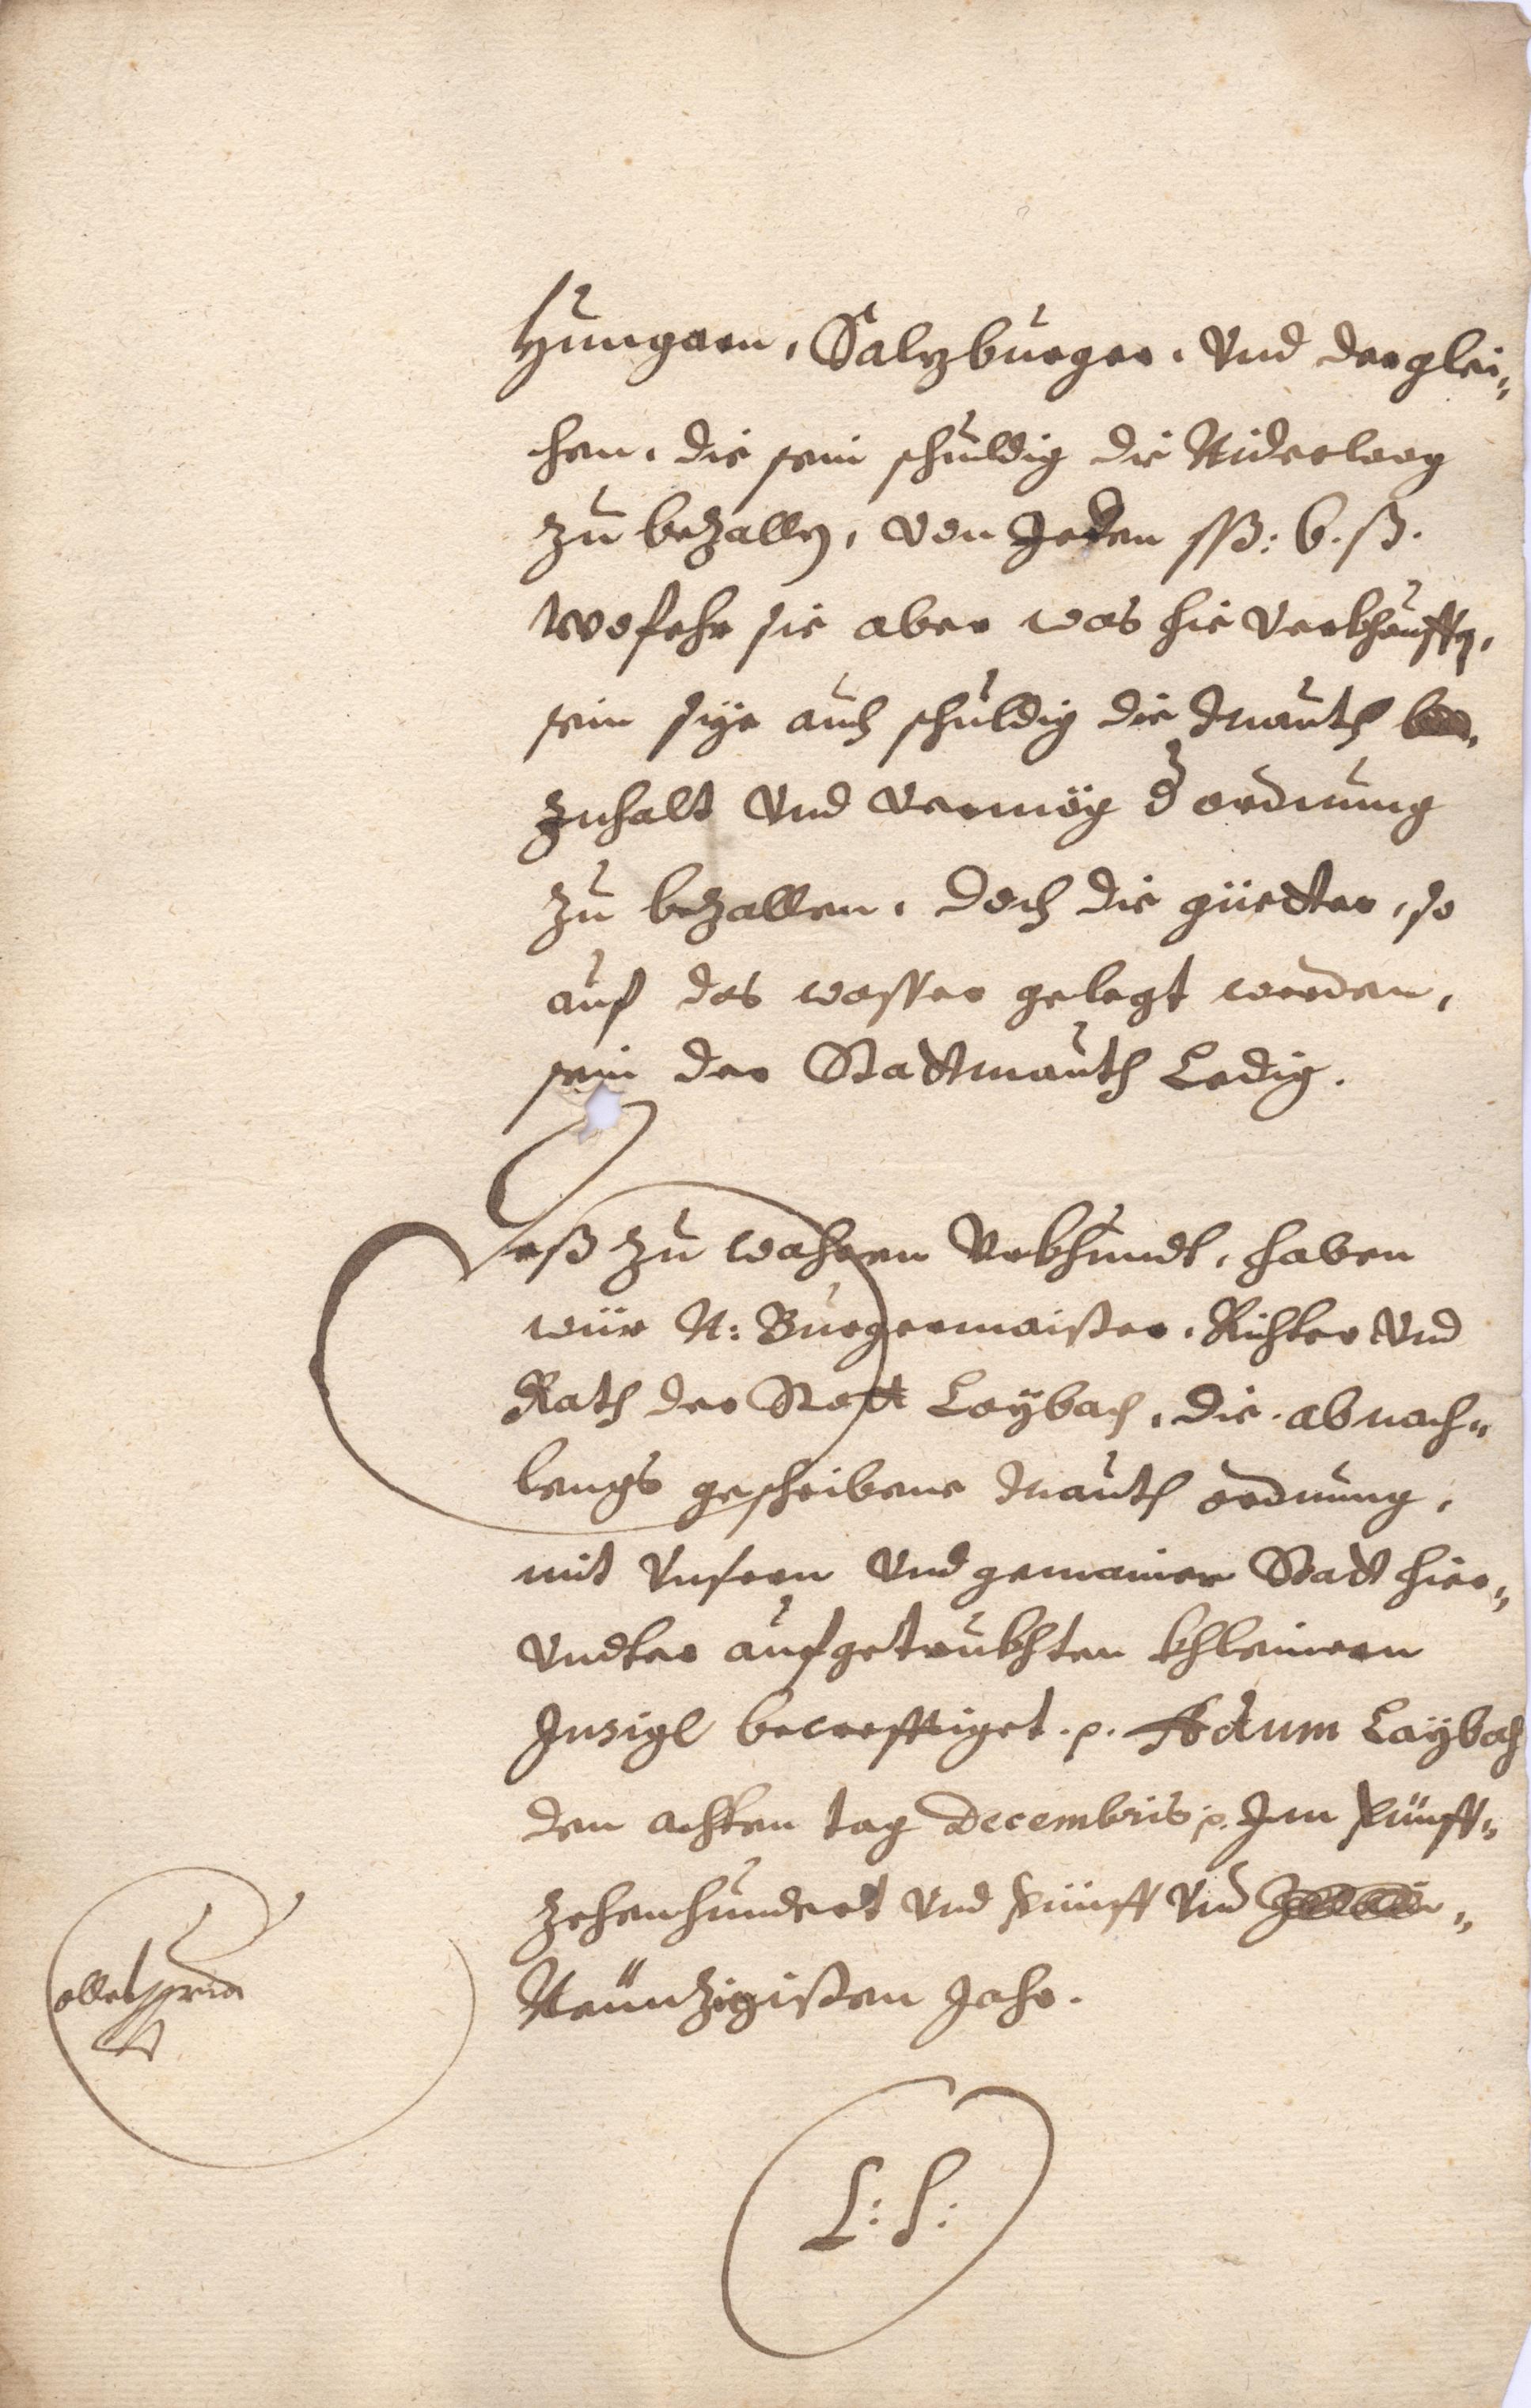 Hungarn, Salzburger, Vnd derglei„
chen, die sein schuldig die Niderlaag
zu bezallen, von Jeden ß.
wofehr sie aber was hie Verkhauffen,
sein sÿe auch schuldig die Mauth
Inhalt Vnd vermög der ordnung
zu bezallen, doch die güetter, so
auf das wasser gelegt werden,
sein der Stattmauth Ledig.
Deß zu wahren Vrkhundt, haben
wür N: Burgermaister, Richter Vnd
Rath der Statt Laÿbach, die abnach„
lengs geschribene Mauth ordnung,
mit Vnsern Vnd gemainer Statt hier„
Vndter aufgetrukhten khleinern
Insigl becrefftiget. p. Actum Laÿbach
den achten tag Decembris p. Im Fünff„
zehenhundert Vnd Fünff Vnd
Neünzigisten Jahr.
L: S: